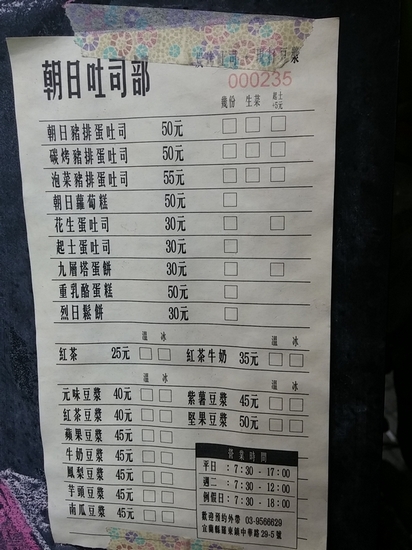 朝日吐司部
000235
幾份 生菜 起士+5元
朝日豬排蛋吐司 50元
碳烤豬排蛋吐司 50元
泡菜豬排蛋吐司 55元
朝日蘿蔔糕 50元
花生蛋吐司 30元
起士蛋吐司 30元
九層塔蛋餅 30元
重乳酪蛋糕 50元
烈日鬆餅 30元
溫 冰 溫 冰
紅茶 25元 紅茶牛奶 35元
溫 冰 溫 冰
元味豆漿 40元 紫薯豆漿 45元
紅茶豆漿 40元 堅果豆漿 50元
蘋果豆漿 45元
牛奶豆漿 45元
鳳梨豆漿 45元
芋頭豆漿 45元
南瓜豆漿 45元
營業時間
平日 : 7:30 - 17:00
週二 : 7:30 - 12:00
例假日 : 7:30 - 18:00
歡迎預約外帶 03-9566629
宜蘭縣羅東鎮中華路29-5號